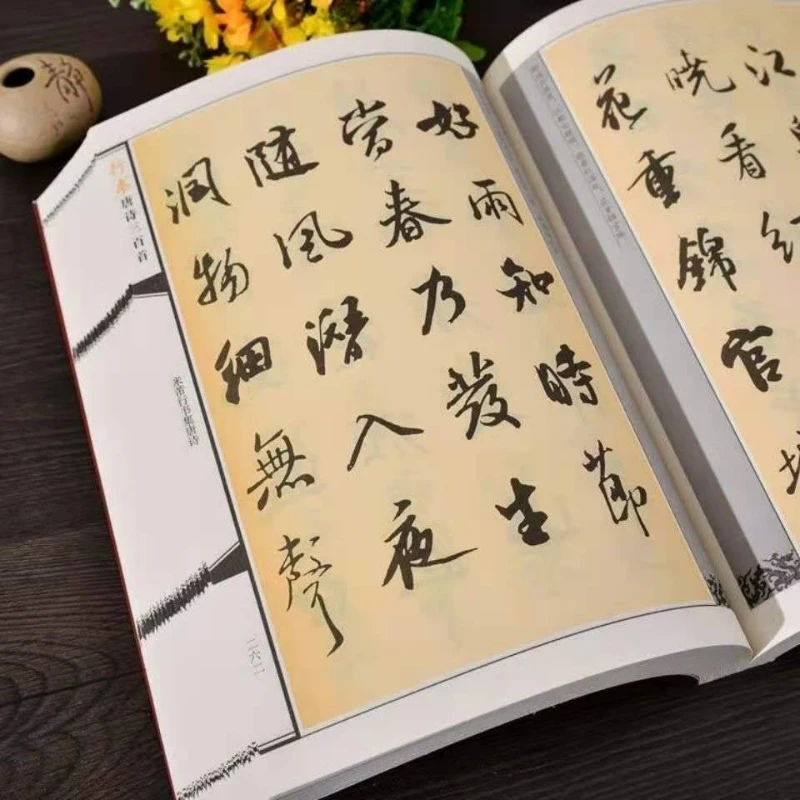 好雨知時節
當春乃發生
隨風潛入夜
潤物細無聲
行書
唐诗三百首
米芾行书集唐诗
二六二
江
曉看紅
花重錦官城
静